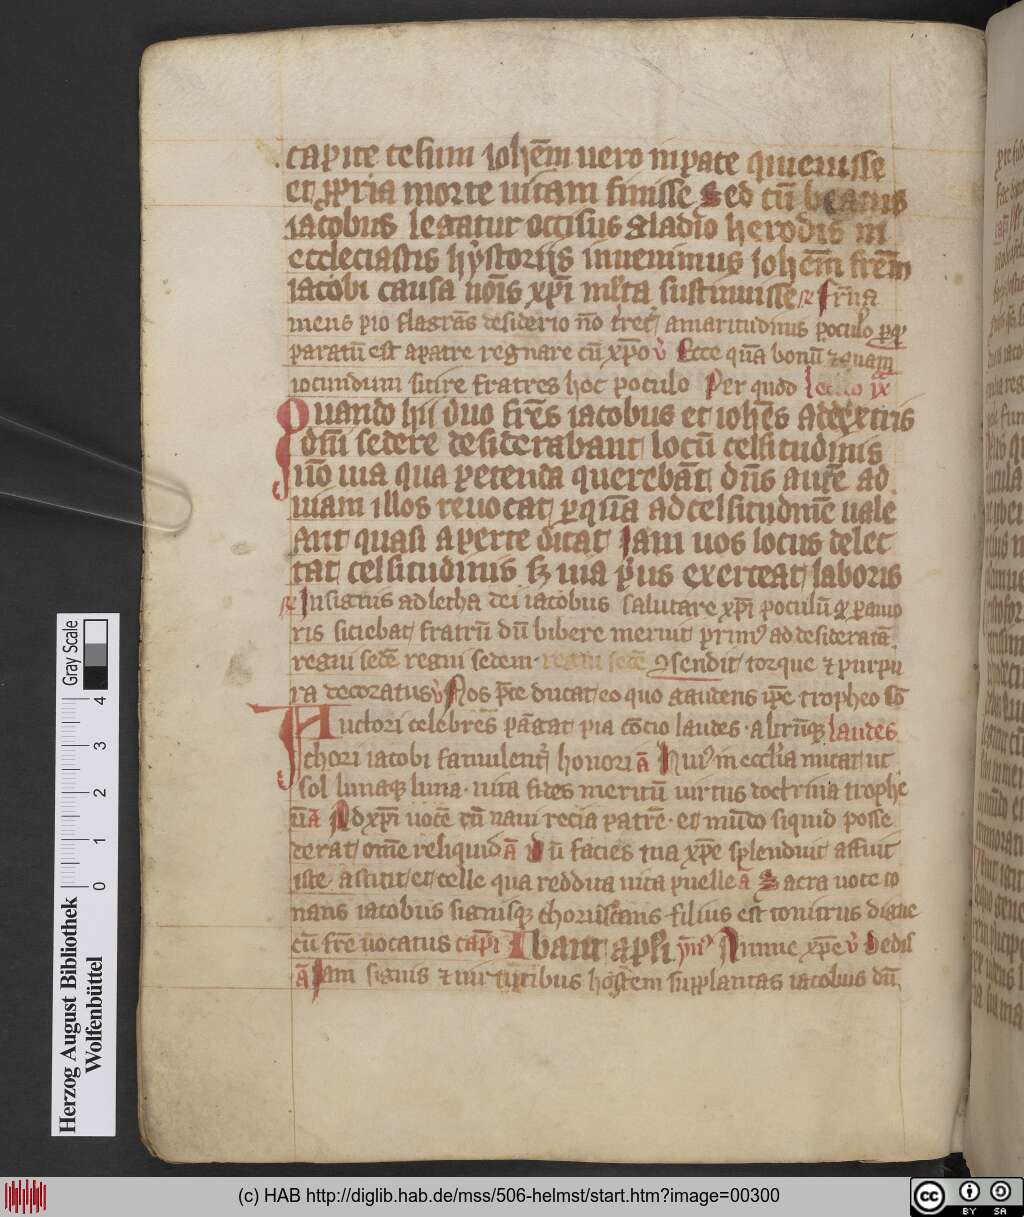 capite cesum ioħēm uero in pace quieuisse
et ꝓpria morte uitam finisse Sed cū beatus
iacobus legatur occisus gladio herodis in
ecclesiastis hystoriis inuenimus ioħēm frēm
iacobi causa nōis xp̄i ml̄ta sustinuisse
mens pio flagrās desiderio nō amaritudinis poculo
paratū est a patre regnare cū xp̄o Ecce quā bonū ⁊ quam
iocundum sitire fratres hoc poculo Per quod lectio ix
Quando hii duo frēs iacobus et ioħēs a dextris
dn̄i sedere desiderabant locū celsitudinis
nō uia qua petenda querebāt dn̄s autē ad
uiam illos reuocat ꝑ quā ad celsitudinē uale
ant quasi aperte dicat Iam uos locus delec
tat celsitudinis sꝫ uia pͥus exerceat laboris
Insignis athleta dei iacobus salutare xp̄i poculū
ris siciebat fratrū dū bibere meruit primꝰ ad desideratā
regni sedē regni sedem regni sedē ꝯsendit torque ⁊ purpu
ra decoratus Nos ducat eo quo gaudens ip̄e tropheo
Auctori celebres pāgat pia cōcio laudes laudes
chori iacobi famulent᷑ honori ā in eccl̄ia micat ut
sol lunaqꝫ luna uiua fides meritū uirtus doctrina trophe
ū ā Ad xp̄i uocē cū naui recia patrē et mūdo siquid posse
derat om̄e reliquid ā Dū facies tua xp̄e splenduit affuit
iste astitit et celle qua reddita uita puelle ā Sacra uoce to
nans iacobus signisqꝫ choruscans filius est tonitrus digne
cū fr̄e uocatus Ibant apl̄i xp̄e Dedis
ā Iam signis ⁊ uirtutibus hostem supplantas iacobus dū
Herzog August Bibliothek
Wolfenbüttel
0 1 2 3 4
Gray Scale
(c) HAB http://diglib.hab.de/mss/506-helmst/start.htm?image=00300
cc BY SA